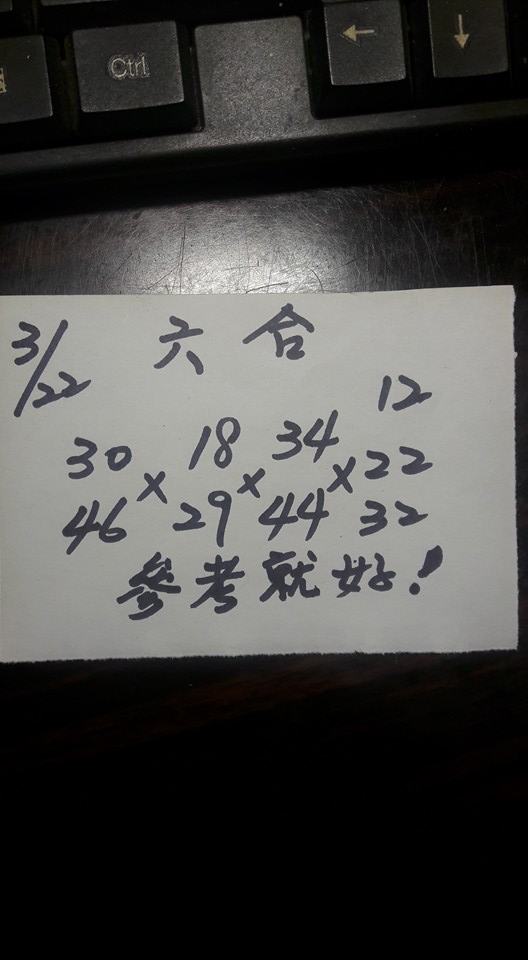 Ctrl
← ↓
3/22 六合
12
30 18 34 22
× × ×
46 29 44 32
參考就好!